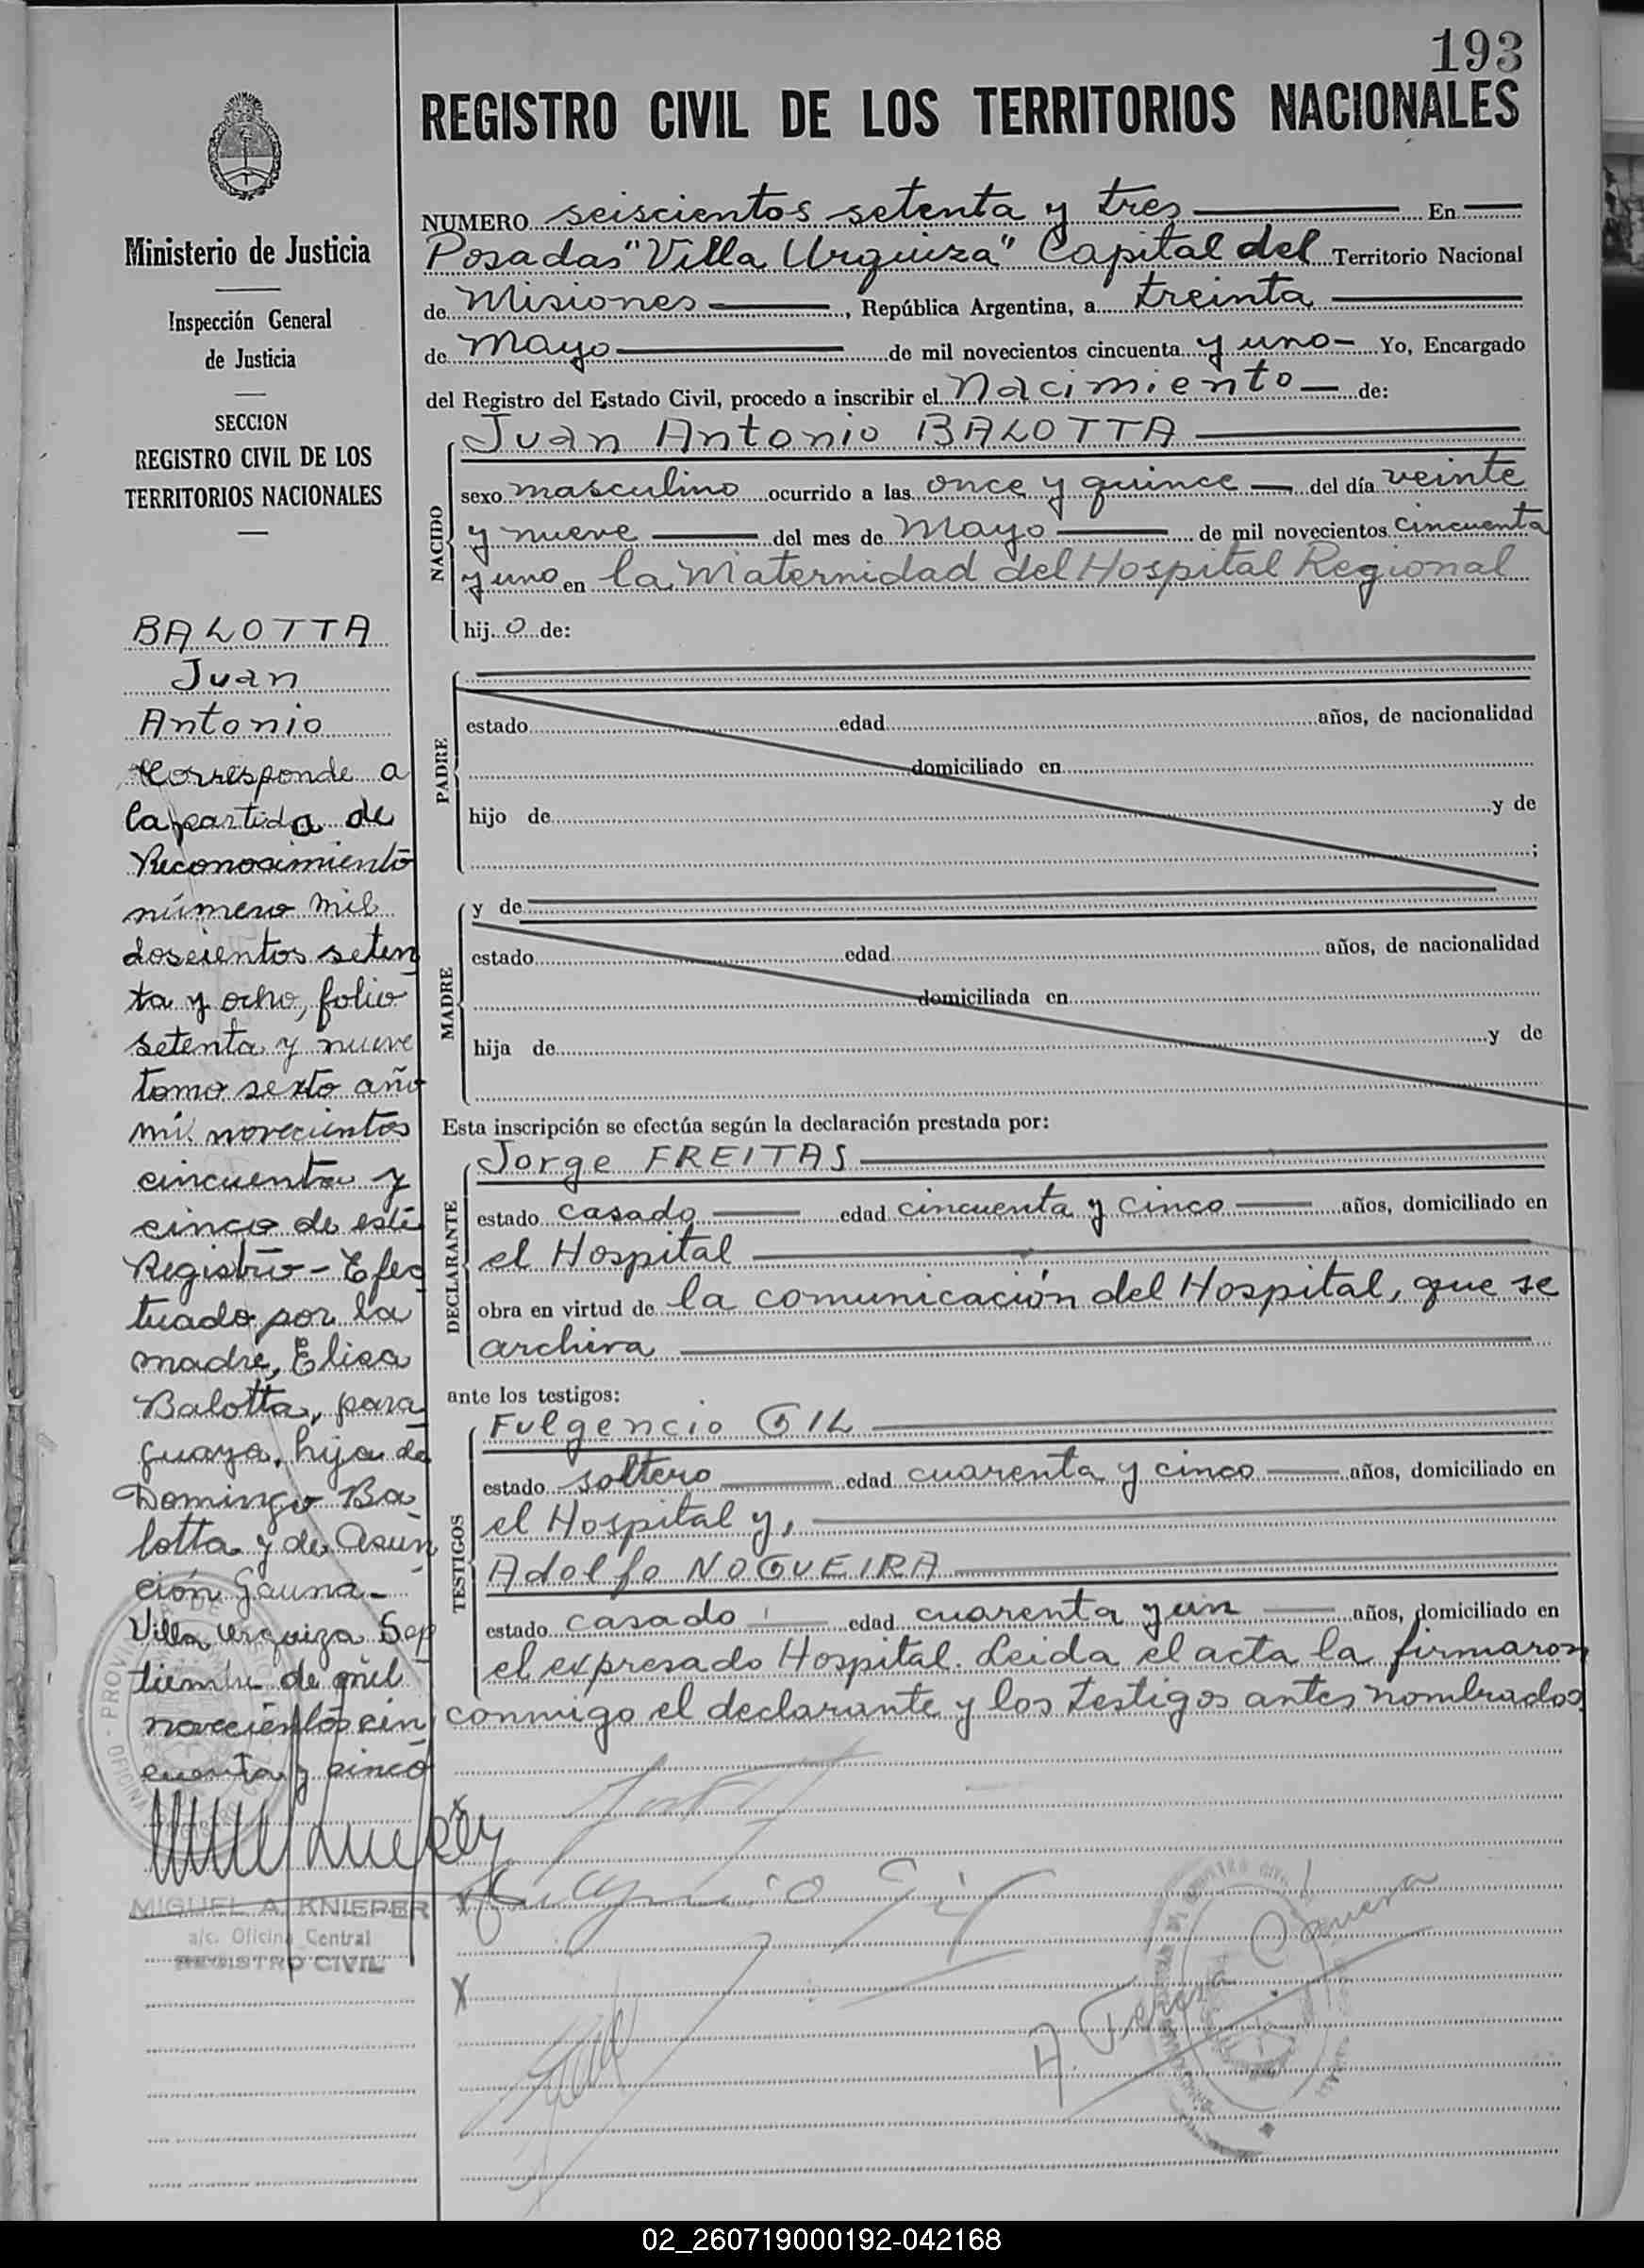 193
REGISTRO CIVIL DE LOS TERRITORIOS NACIONALES
Ministerio de Justicia
Inspección General
de Justicia
SECCION
REGISTRO CIVIL DE LOS
TERRITORIOS NACIONALES
BALOTTA
Juan
Antonio
Corresponde a
la partida de
Reconocimiento
número mil
doscientos seten
ta y ocho, folio
setenta y nueve
tomo sexto año
mil novecientos
cincuenta y
cinco de este
Registro - Efec
tuado por la
madre, Elisa
Balotta, para
guaya, hija de
Domingo Ba
lotta y de Asun
ción Gauna -
Villa Urquiza Sep
tiembre de mil
novecientos cin
cuenta y cinco
MIGUEL A. KNIEPER
a/c. Oficina Central
REGISTRO CIVIL
NUMERO seiscientos setenta y tres En
Posadas "Villa Urquiza" Capital del Territorio Nacional
de Misiones, República Argentina, a treinta
de Mayo de mil novecientos cincuenta y uno - Yo, Encargado
del Registro del Estado Civil, procedo a inscribir el Nacimiento de:
NACIDO
Juan Antonio BALOTTA
sexo masculino ocurrido a las once y quince del día veinte
y nueve del mes de Mayo de mil novecientos cincuenta
y uno en la Maternidad del Hospital Regional
hijo de:
PADRE
estado edad años, de nacionalidad
domiciliado en
hijo de y de
;
MADRE
y de
estado edad años, de nacionalidad
domiciliada en
hija de y de
Esta inscripción se efectúa según la declaración prestada por:
DECLARANTE
Jorge FREITAS
estado casado edad cincuenta y cinco años, domiciliado en
el Hospital
obra en virtud de la comunicación del Hospital, que se
archiva
ante los testigos:
TESTIGOS
Fulgencio GIL
estado soltero edad cuarenta y cinco años, domiciliado en
el Hospital y,
Adolfo NOGUEIRA
estado casado edad cuarenta y un años, domiciliado en
el expresado Hospital. Leida el acta la firmaron
conmigo el declarante y los testigos antes nombrados
X
X
X
02_260719000192-042168